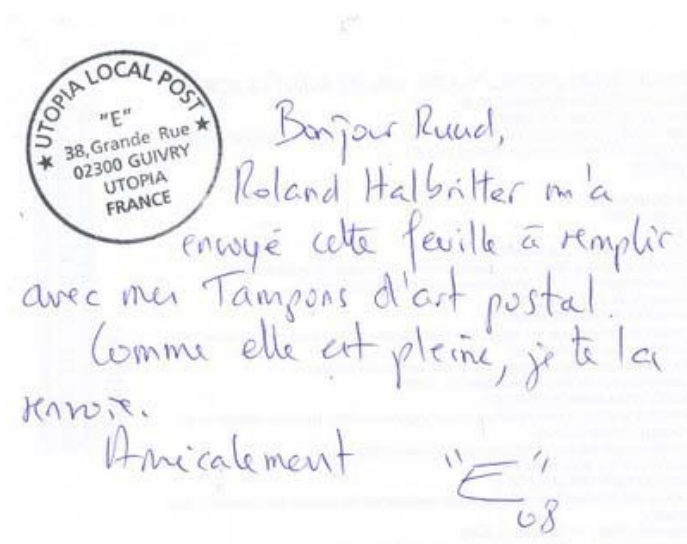 ★ UTOPIA LOCAL POST ★
"E"
38, Grande Rue
02300 GUIVRY
UTOPIA
FRANCE
Bonjour Ruud,
Roland Halbritter m'a
envoyé cette feuille à remplir
avec mes Tampons d'art postal.
Comme elle est pleine, je te la
renvoie.
Amicalement
"E"
08